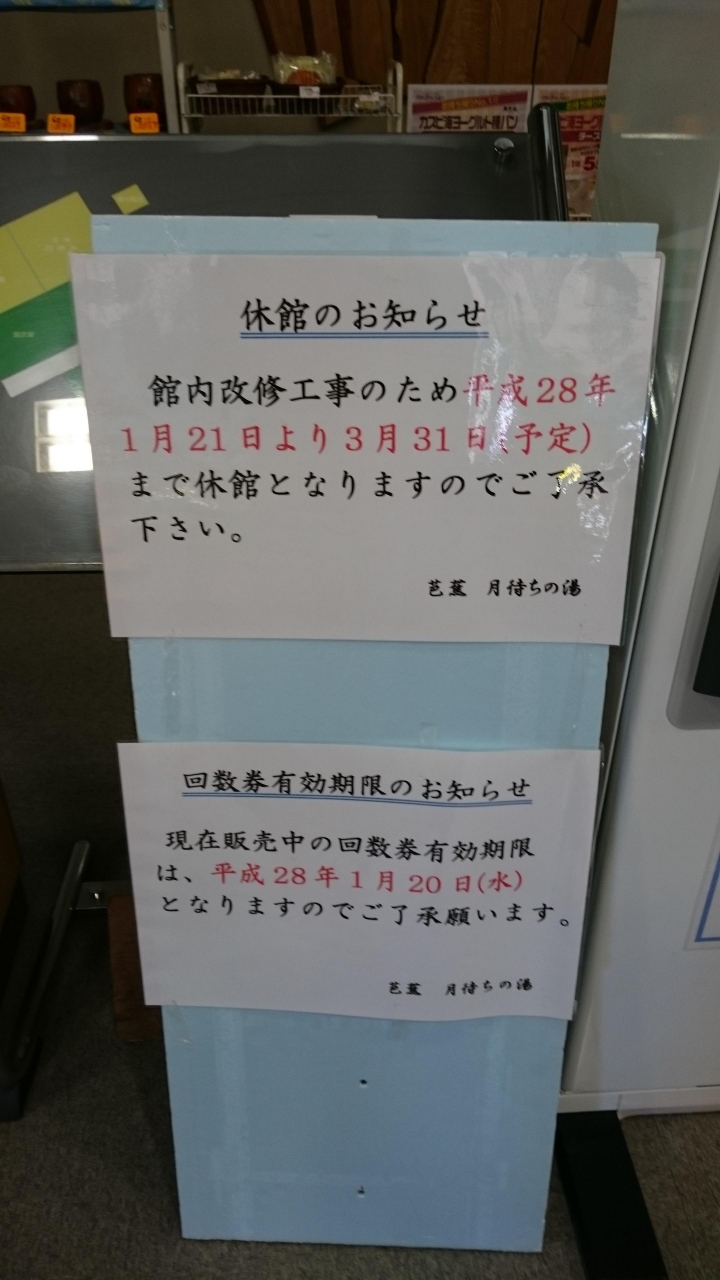 カスピ海ヨーグルト種パン
休館のお知らせ
館内改修工事のため平成28年
1月21日より3月31日(予定)
まで休館となりますのでご了承
下さい。
芭蕉 月待ちの湯
回数券有効期限のお知らせ
現在販売中の回数券有効期限
は、平成28年1月20日(水)
となりますのでご了承願います。
芭蕉 月待ちの湯